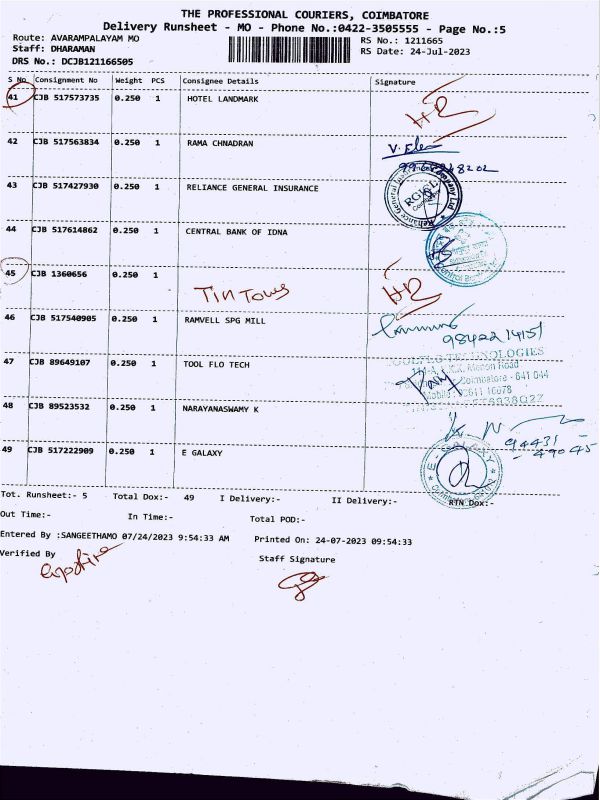 THE PROFESSIONAL COURIERS, COIMBATORE
Delivery Runsheet - MO - Phone No.:0422-3505555 - Page No.:5
Route: AVARAMPALAYAM MO
RS No.: 1211665
Staff: DHARAMAN
RS Date: 24-Jul-2023
DRS No.: DCJB121166505
S No Consignment No Weight PCS Consignee Details Signature
41 CJB 517573735 0.250 1 HOTEL LANDMARK
42 CJB 517563834 0.250 1 RAMA CHNADRAN
43 CJB 517427930 0.250 1 RELIANCE GENERAL INSURANCE
RGICL
44 CJB 517614862 0.250 1 CENTRAL BANK OF IDNA
45 CJB 1360656 0.250 1
46 CJB 517540905 0.250 1 RAMVELL SPG MILL
9842214151
47 CJB 89649107 0.250 1 TOOL FLO TECH
Coimbatore - 641 044
48 CJB 89523532 0.250 1 NARAYANASWAMY K
94431
- 49045
49 CJB 517222909 0.250 1 E GALAXY
E. GALAXY
Tot. Runsheet:- 5 Total Dox:- 49 I Delivery:- II Delivery:- RTN Dox:-
Out Time:- In Time:- Total POD:-
Entered By :SANGEETHAMO 07/24/2023 9:54:33 AM Printed On: 24-07-2023 09:54:33
Verified By
Staff Signature